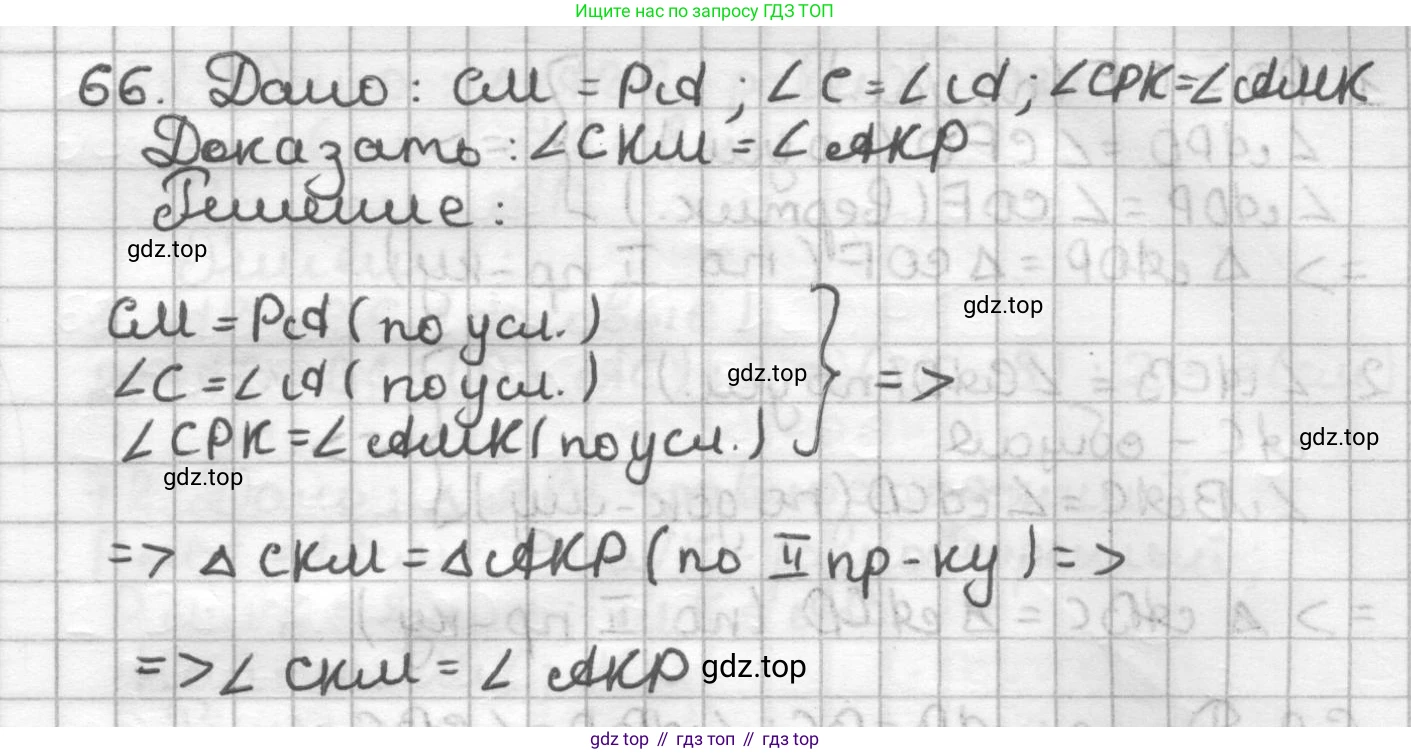 Ищите нас по запросу ГДЗ ТОП
66. Дано: CM = PA; ∠C = ∠A; ∠CPK = ∠AMK
Доказать: ∠CKM = ∠AKP
Решение:
gdz.top
CM = PA (по усл.)
gdz.top
∠C = ∠A (по усл.)
gdz.top
=>
∠CPK = ∠AMK (по усл.)
gdz.top
gdz.top
=> Δ CKM = Δ AKP (по II пр-ку) =>
=> ∠ CKM = ∠ AKP
gdz.top
gdz top // гдз топ // гдз top